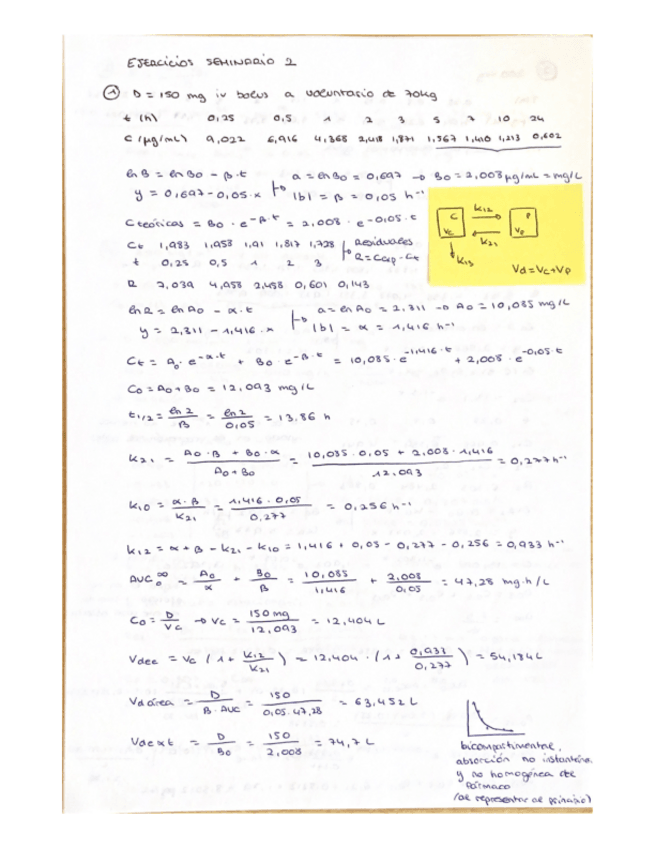 EJERCICIOS SEMINARIO 2
① D = 150 mg iv bolus a voluntario de 70kg
t (h) 0,25 0,5 1 2 3 5 7 10 24
C (μg/mL) 9,022 6,916 4,368 2,418 1,871 1,567 1,410 1,213 0,602
ln B = ln B0 - β·t a = ln B0 = 0,697 → B0 = 2,008 μg/mL = mg/L
y = 0,697 - 0,05·x |b| = β = 0,05 h⁻¹
C teóricas = B0 · e^-β·t = 2,008 · e^-0,05·t
Ct 1,983 1,958 1,91 1,817 1,728 Residuales
t 0,25 0,5 1 2 3 R = Cexp - Ct
R 7,039 4,958 2,458 0,601 0,143
C K12 P
Vc K21 Vp
K13
Vd = Vc + Vp
ln R = ln A0 - α·t a = ln A0 = 2,311 → A0 = 10,085 mg/L
y = 2,311 - 1,416·x |b| = α = 1,416 h⁻¹
Ct = A0·e^-α·t + B0·e^-β·t = 10,085·e^-1,416·t + 2,008·e^-0,05·t
C0 = A0 + B0 = 12,093 mg/L
t1/2 = ln 2 / β = ln 2 / 0,05 = 13,86 h
K21 = A0·β + B0·α / A0 + B0 = 10,085·0,05 + 2,008·1,416 / 12,093 = 0,277 h⁻¹
K10 = α·β / K21 = 1,416·0,05 / 0,277 = 0,256 h⁻¹
K12 = α + β - K21 - K10 = 1,416 + 0,05 - 0,277 - 0,256 = 0,933 h⁻¹
AUC0^∞ = A0 / α + B0 / β = 10,085 / 1,416 + 2,008 / 0,05 = 47,28 mg·h/L
C0 = D / Vc → Vc = 150 mg / 12,093 = 12,404 L
Vdee = Vc (1 + K12 / K21) = 12,404 · (1 + 0,933 / 0,277) = 54,184 L
Vd área = D / β·AUC = 150 / 0,05·47,28 = 63,452 L
Vd ext = D / B0 = 150 / 2,008 = 74,7 L
bicompartimental,
absorción no instantánea
y no homogénea de
fármaco
(al representar al principio)